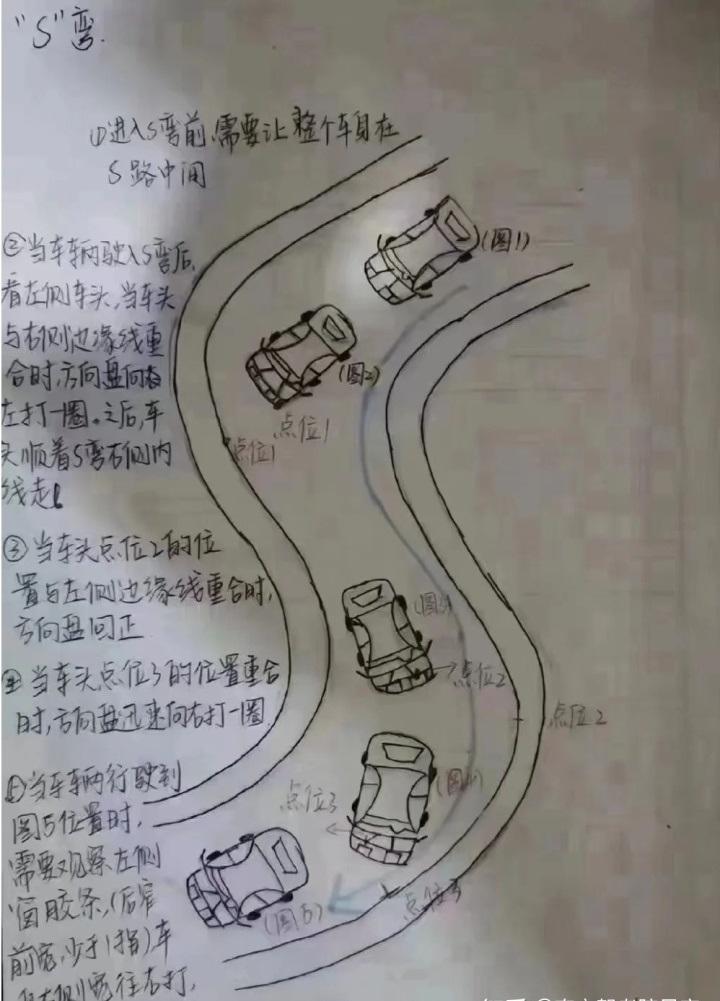 "S"弯.
①进入S弯前,需要让整个车身在
S路中间
②当车辆驶入S弯后,
看左侧车头,当车头
与右侧边缘线重
合时,方向盘向
左打一圈。之后,车
头顺着S弯右侧内
线走
③当车头点位2的位
置与左侧边缘线重合时,
方向盘回正
④当车头点位3的位置重合
时,方向盘迅速向右打一圈.
当车辆行驶到
图5位置时,
需要观察左侧
窗胶条,(后窄
前宽,少于1指)车
左侧宽往右打,
(图1)
(图2)
点位1
点位1
(图3)
点位2
点位2
(图4)
点位3
点位3
(图5)